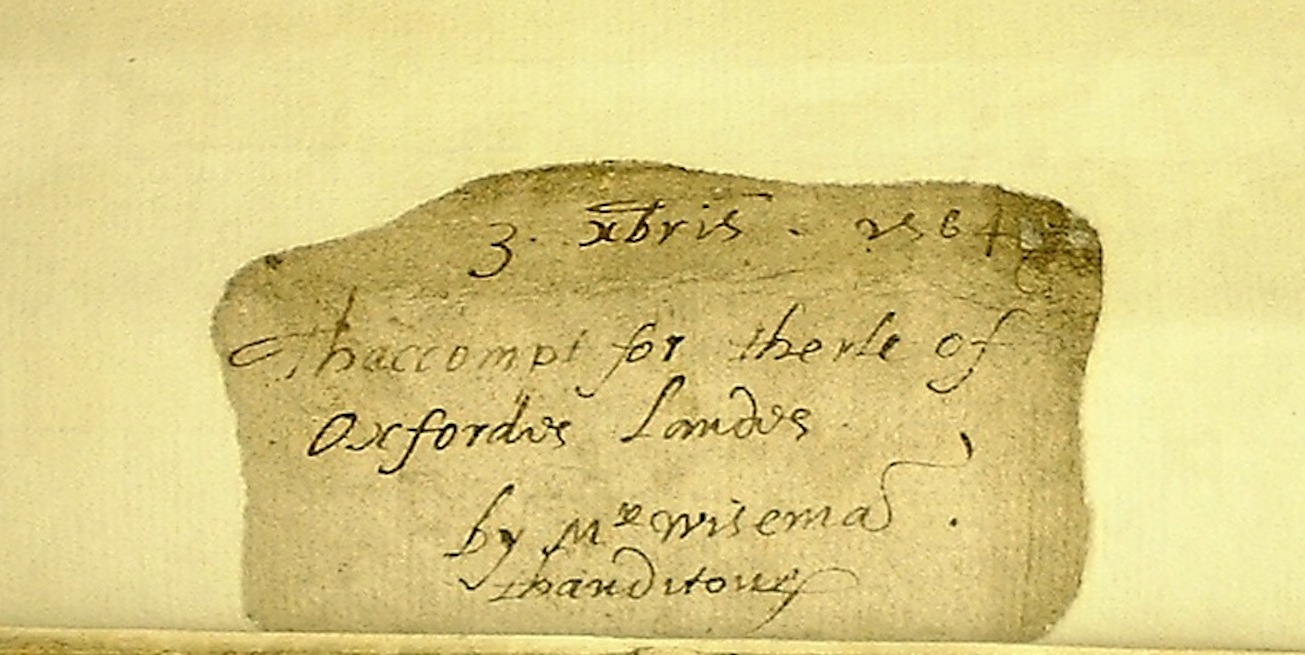 3. xbris. 1564
Thaccompt for therle of
Oxfordes Landes
by Mr wisema
thauditour